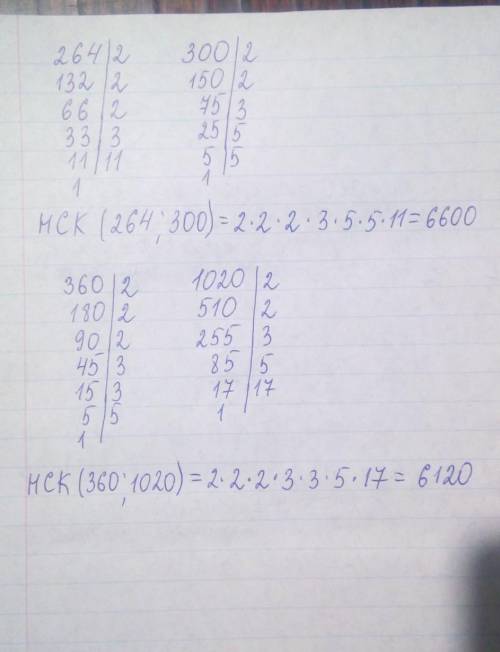 264|2 300|2
132|2 150|2
66|2 75|3
33|3 25|5
11|11 5|5
1 1
НСК (264; 300) = 2·2·2·3·5·5·11 = 6600
360|2 1020|2
180|2 510|2
90|2 255|3
45|3 85|5
15|3 17|17
5|5 1
1
НСК (360; 1020) = 2·2·2·3·3·5·17 = 6120